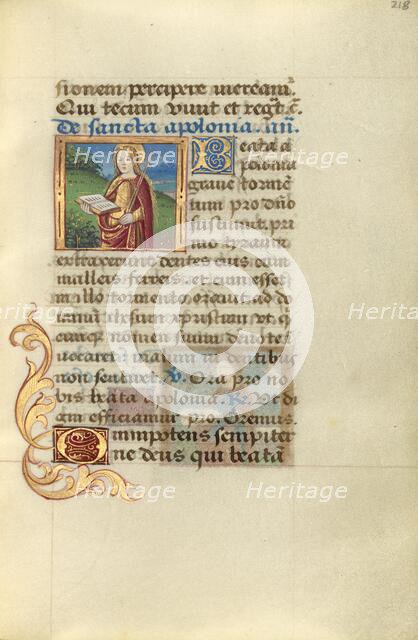 218
sionem percipere meream̄.
Qui tecum vivit et regt̄ c̄.
De sancta apolonia. añ.
Beata a
polonia
grave tormē
tum pro dn̄o
sustinuit. pri
mo tyranni
extraxerunt dentes eius cum
malleis ferreis. et cum esset
in illo tormento oravit ad do
minū
vocaret malum in dentibus
non sentiret. V. Ora pro no
bis beata apolonia. R. Ut di
gni efficiamur pro. Oremus.
Omnipotens sempiter
ne deus qui beatā
Heritage
Heritage
Heritage
Heritage
Heritage
Heritage
Heritage
Heritage
Heritage